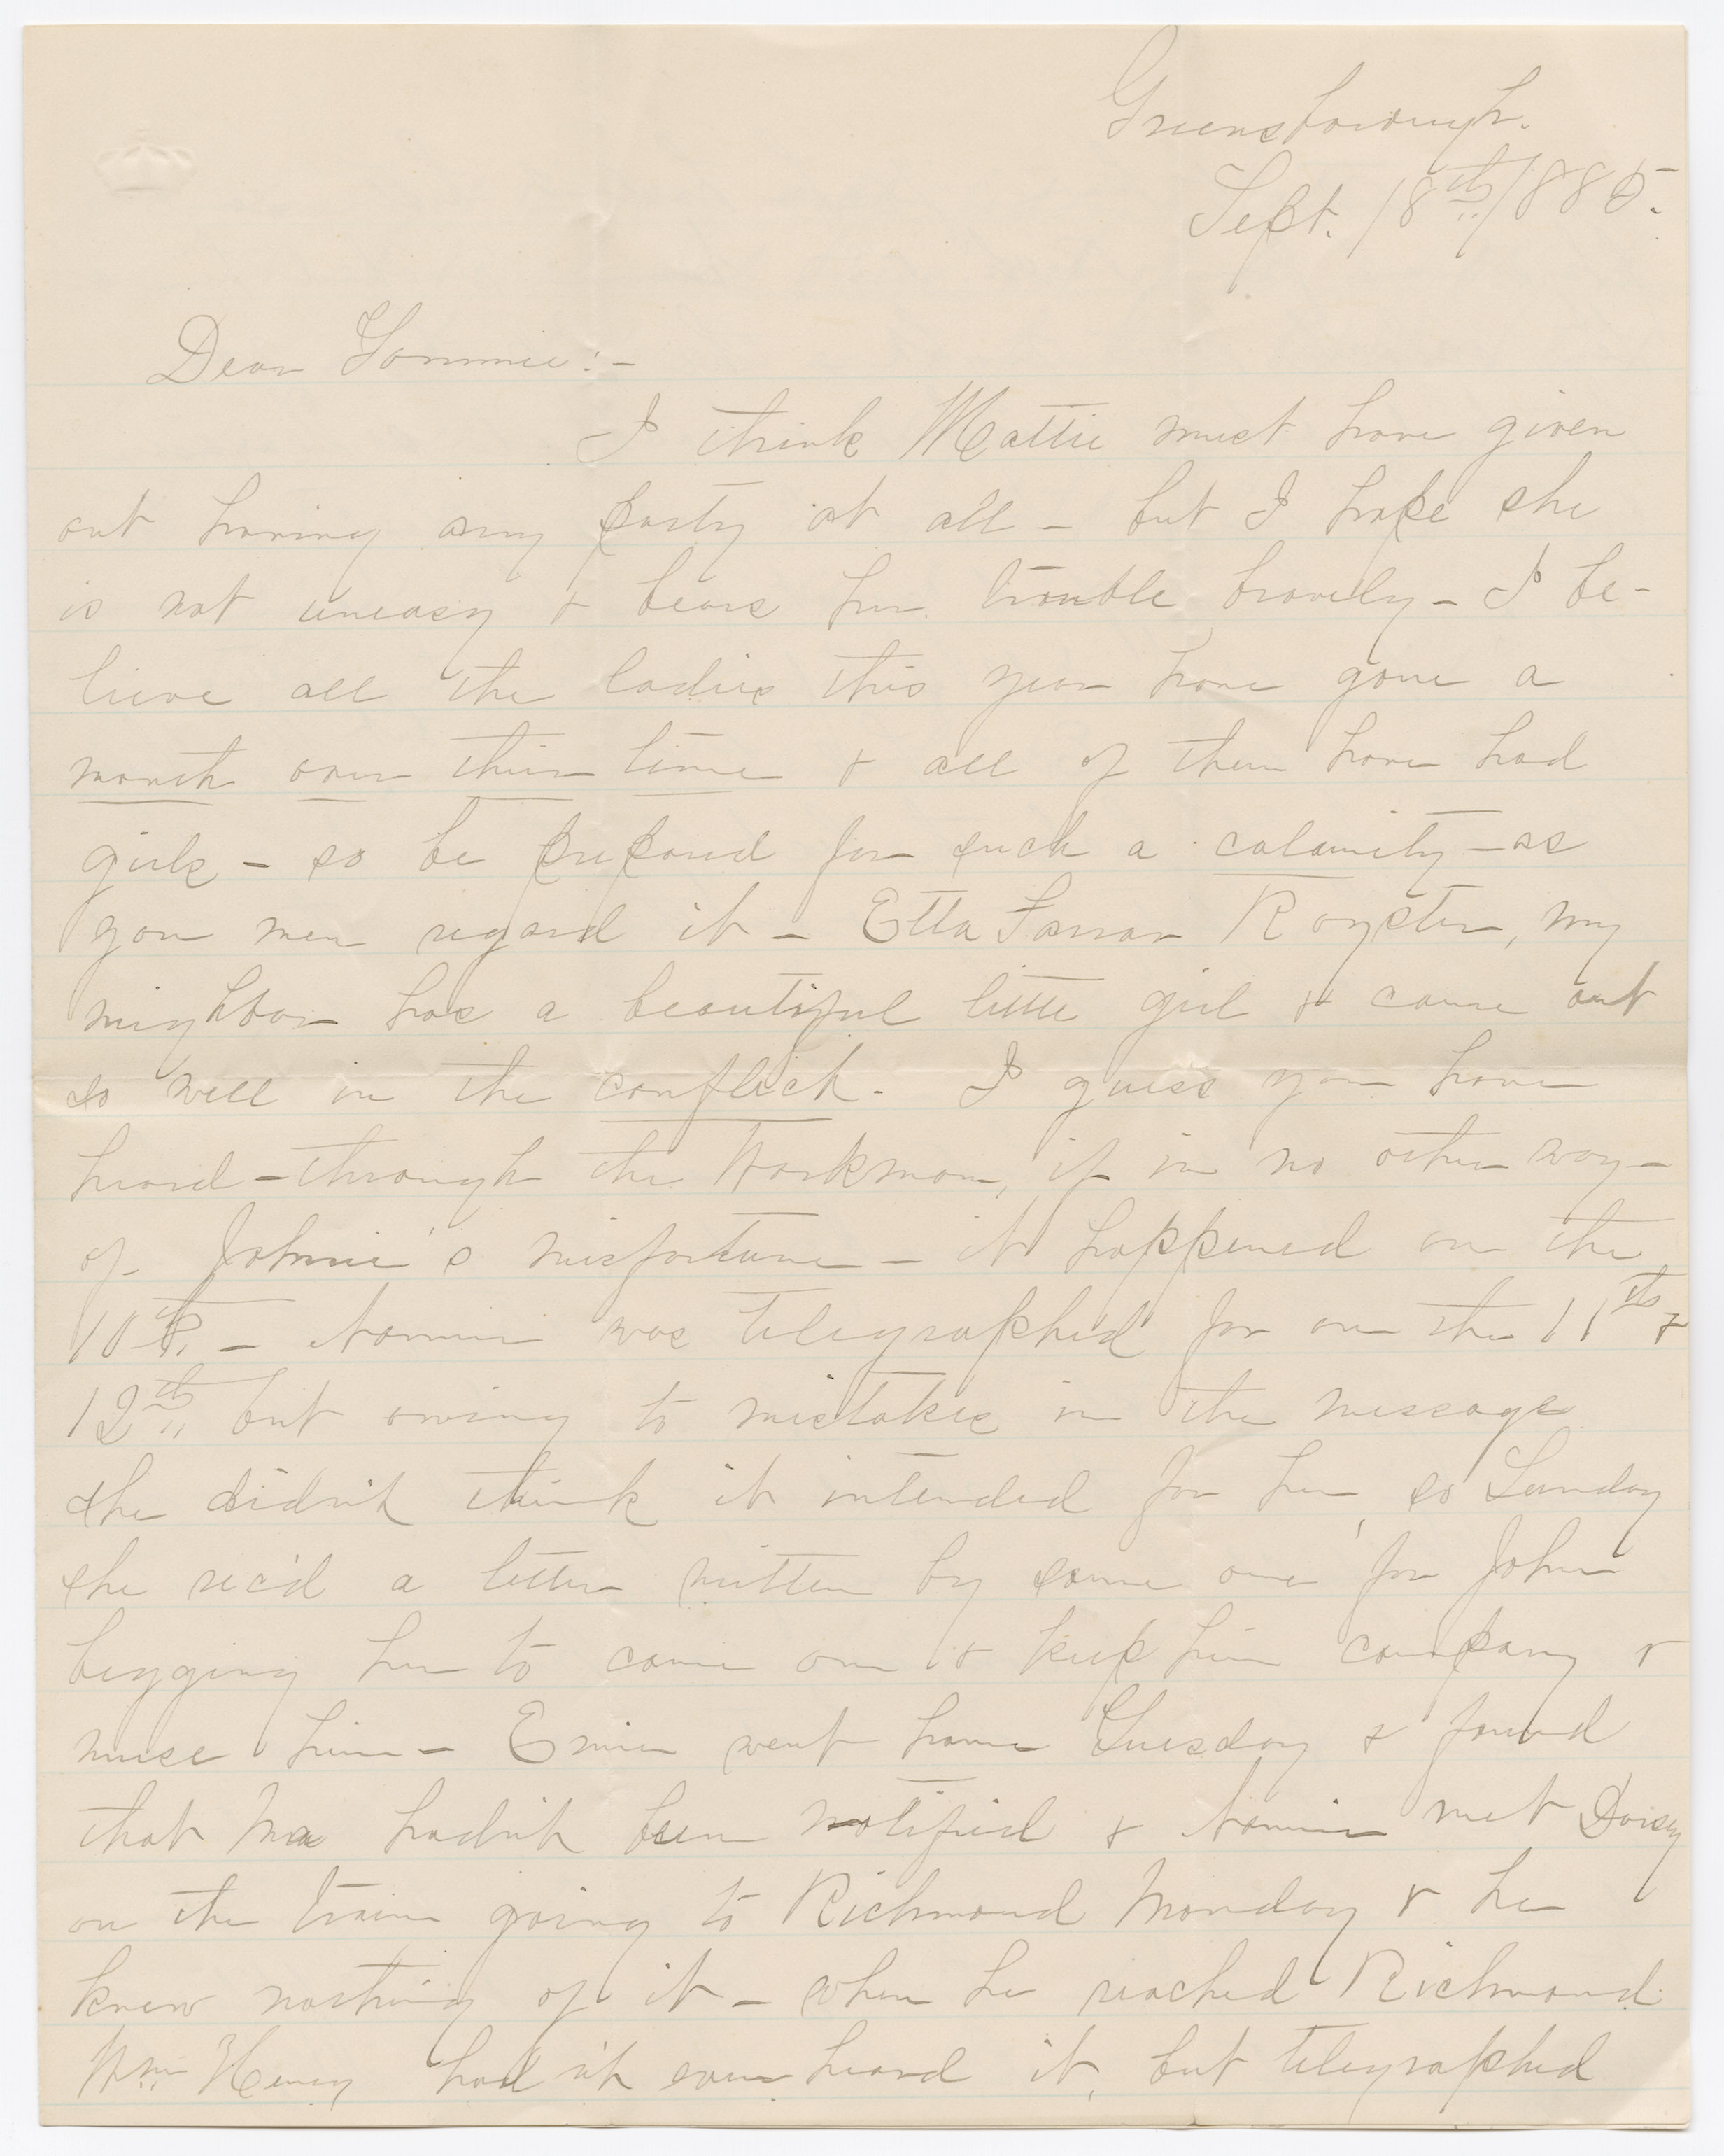 Greensborough.
Sept. 18th/1885.
Dear Tommie:-
I think Mattie must have given
out having any party at all - but I hope she
is not uneasy & bears her trouble bravely - I be-
lieve all the ladies this year have gone a
month over their time & all of them have had
girls - so be prepared for such a calamity - as
you men regard it - Etta Farrar Royster, my
neighbor has a beautiful little girl & came out
so well in the conflict. I guess you have
heard - through the Workman, if in no other way -
of Johnie's misfortune - it happened on the
10th. - Nannie was telegraphed for on the 11th &
12th, but owing to mistakes in the message
she didn't think it intended for her, so Sunday
she rec'd a letter written by some one for John
begging her to come on & keep him company &
nurse him - Ernie went home Tuesday & found
that Ma hadn't been notified & Nannie met Daisy
on the train going to Richmond Monday & he
knew nothing of it - when he reached Richmond
Wm Henry hadn't even heard it, but telegraphed